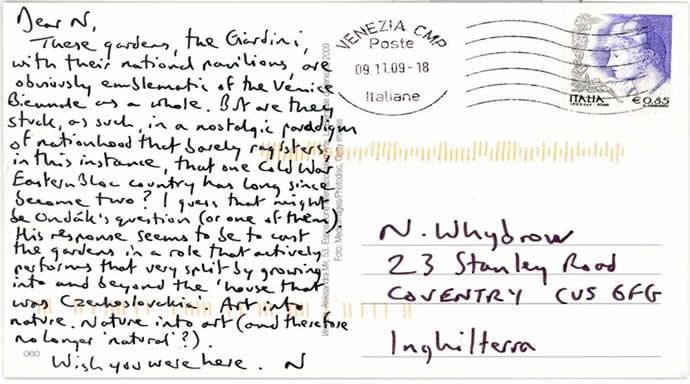 Dear N,
These gardens, the Giardini,
with their national pavilions, are
obviously emblematic of the Venice
Biennale as a whole. But are they
stuck, as such, in a nostalgic paradigm
of nationhood that barely registers,
in this instance, that one Cold War
Eastern Bloc country has long since
become two? I guess that might
be Ondák's question (or one of them).
His response seems to be to cast
the gardens in a role that actively
performs that very split by growing
into and beyond the 'house that
was Czechoslovakia'. Art into
nature. Nature into art (and therefore
no longer 'natural'?).
Wish you were here. N
060
Aleksandra Mir, 53. Esposizione
2009
Foto: Getty Images
VENEZIA CMP
Poste
09.11.09-18
Italiane
ITALIA
€0,85
N. Whybrow
23 Stanley Road
COVENTRY CV5 6FG
Inghilterra